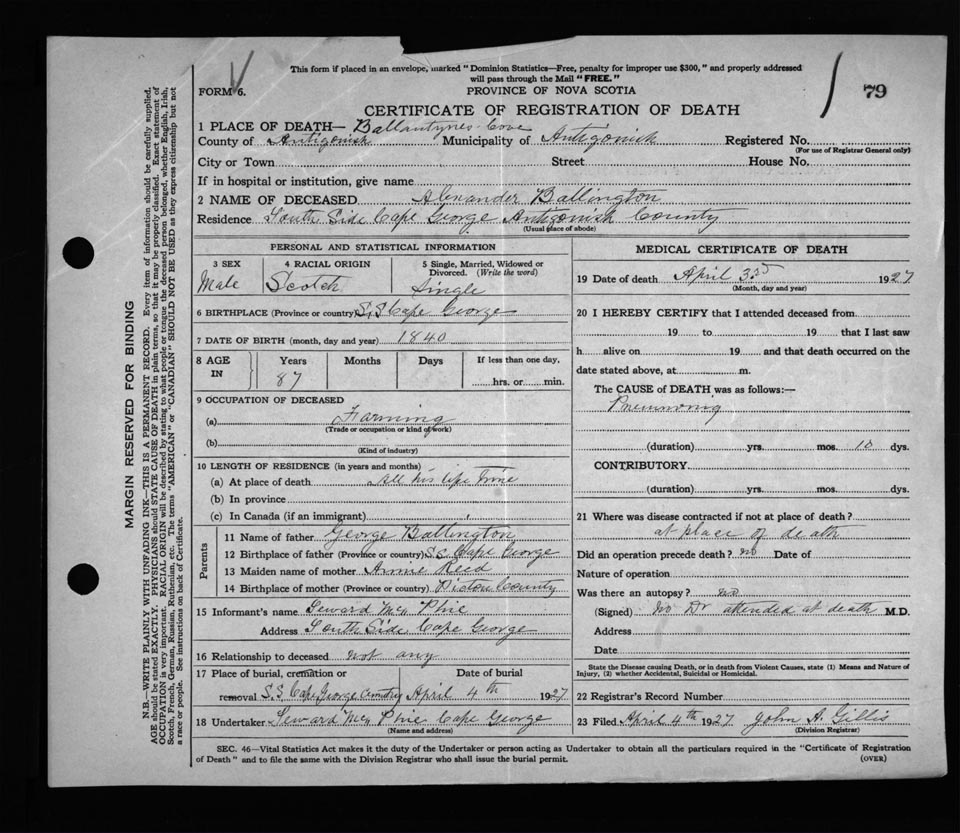 This form if placed in an envelope, marked "Dominion Statistics—Free, penalty for improper use $300," and properly addressed
will pass through the Mail "FREE."
FORM 6.
PROVINCE OF NOVA SCOTIA
79
CERTIFICATE OF REGISTRATION OF DEATH
1 PLACE OF DEATH— Ballantynes Cove
County of Antigonish Municipality of Antigonish Registered No.
(For use of Registrar General only)
City or Town Street House No.
If in hospital or institution, give name
2 NAME OF DECEASED Alexander Ballington
Residence South Side Cape George Antigonish County
(Usual place of abode)
PERSONAL AND STATISTICAL INFORMATION
3 SEX
Male
4 RACIAL ORIGIN
Scotch
5 Single, Married, Widowed or
Divorced. (Write the word)
Single
6 BIRTHPLACE (Province or country) S,S Cape George
7 DATE OF BIRTH (month, day and year) 1840
8 AGE
IN
Years
87
Months
Days
If less than one day,
hrs. or min.
9 OCCUPATION OF DECEASED
(a) Farming
(Trade or occupation or kind of work)
(b)
(Kind of industry)
10 LENGTH OF RESIDENCE (in years and months)
(a) At place of death All his life time
(b) In province
(c) In Canada (if an immigrant)
Parents
11 Name of father George Ballington
12 Birthplace of father (Province or country) S.S. Cape George
13 Maiden name of mother Annie Reed
14 Birthplace of mother (Province or country) Pictou County
15 Informant's name Seward Mc Phie
Address South Side Cape George
16 Relationship to deceased not any
17 Place of burial, cremation or
removal S.S. Cape George Cemetry
Date of burial
April 4th 1927
18 Undertaker Seward Mc Phie Cape George
(Name and address)
MEDICAL CERTIFICATE OF DEATH
19 Date of death April 3rd 1927
(Month, day and year)
20 I HEREBY CERTIFY that I attended deceased from
19 to 19 that I last saw
h alive on 19 and that death occurred on the
date stated above, at m.
The CAUSE of DEATH was as follows:—
Pneumonia
(duration) yrs. mos. 10 dys.
CONTRIBUTORY
(duration) yrs. mos. dys.
21 Where was disease contracted if not at place of death?
at place of death
Did an operation precede death? no Date of
Nature of operation
Was there an autopsy? no
(Signed) No Dr attended at death M.D.
Address
Date
State the Disease causing Death, or in death from Violent Causes, state (1) Means and Nature of
Injury, (2) whether Accidental, Suicidal or Homicidal.
22 Registrar's Record Number
23 Filed April 4th 1927 John A. Gillis
(Division Registrar)
SEC. 46—Vital Statistics Act makes it the duty of the Undertaker or person acting as Undertaker to obtain all the particulars required in the "Certificate of Registration
of Death" and to file the same with the Division Registrar who shall issue the burial permit.
(OVER)
MARGIN RESERVED FOR BINDING
N.B. WRITE PLAINLY WITH UNFADING INK—THIS IS A PERMANENT RECORD. Every item of information should be carefully supplied.
AGE should be stated EXACTLY. PHYSICIANS should STATE CAUSE OF DEATH in plain terms, so that it may be properly classified. Exact statement of
OCCUPATION is very important. RACIAL ORIGIN will be described by stating to what people or tongue the deceased person belonged, whether English, Irish,
Scotch, French, German, Russian, Ruthenian, etc. The terms "AMERICAN" or "CANADIAN" SHOULD NOT BE USED as they express citizenship but not
a race or people. See instructions on back of Certificate.